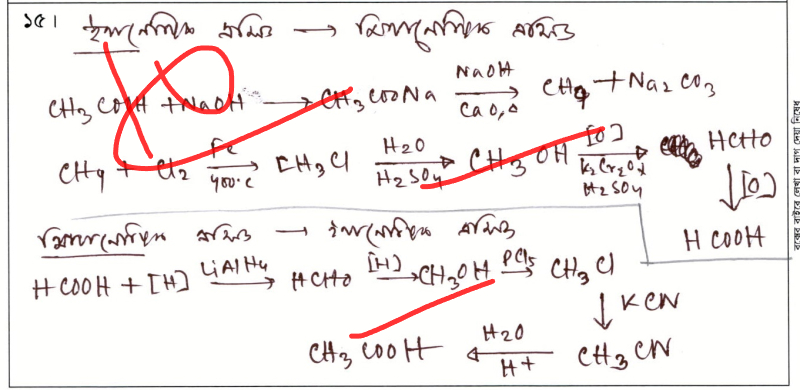 ১৫। ইথানোয়িক এসিড → মিথানোয়িক এসিড
CH3COOH + NaOH → CH3COONa NaOH / CaO, Δ → CH4 + Na2CO3
CH4 + Cl2 Fe / 400°C → CH3Cl H2O / H2SO4 → CH3OH [O] / K2Cr2O7 H2SO4 → HCHO
↓ [O]
HCOOH
মিথানোয়িক এসিড → ইথানোয়িক এসিড
HCOOH + [H] LiAlH4 → HCHO [H] → CH3OH PCl5 → CH3Cl
↓ KCN
CH3COOH ← H2O / H+ CH3CN
বক্সের বাইরে লেখা বা দাগ দেয়া নিষেধ